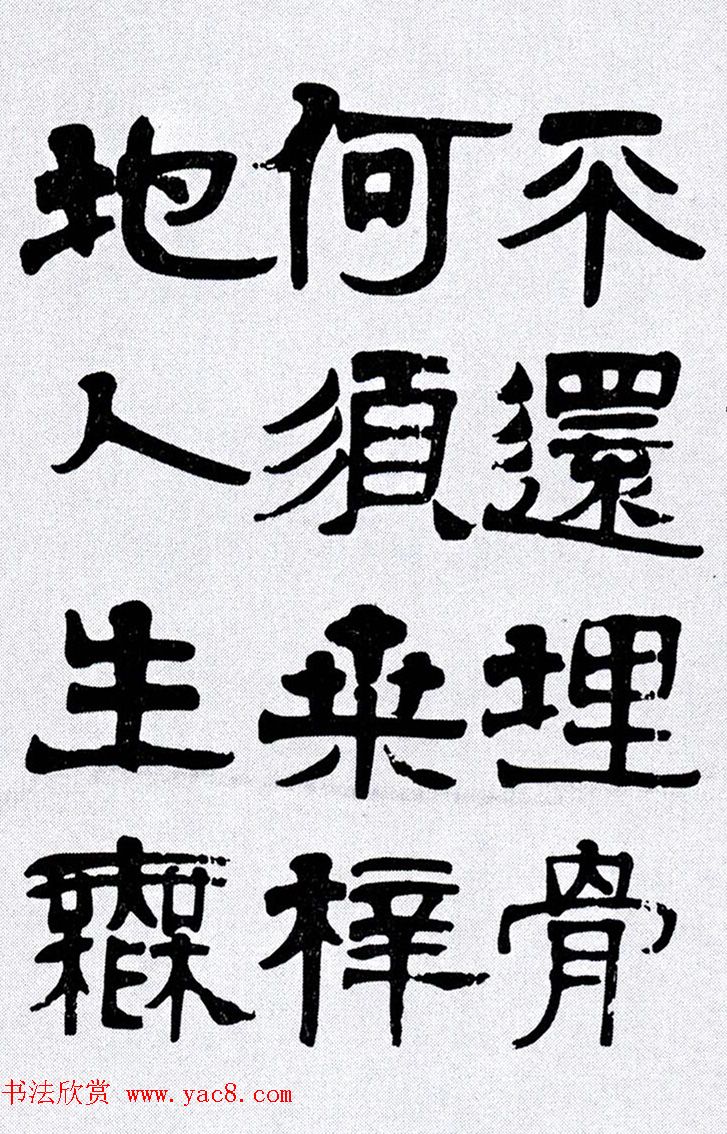 不還埋骨
何須桑梓
地人生無
书法欣赏 www.yac8.com